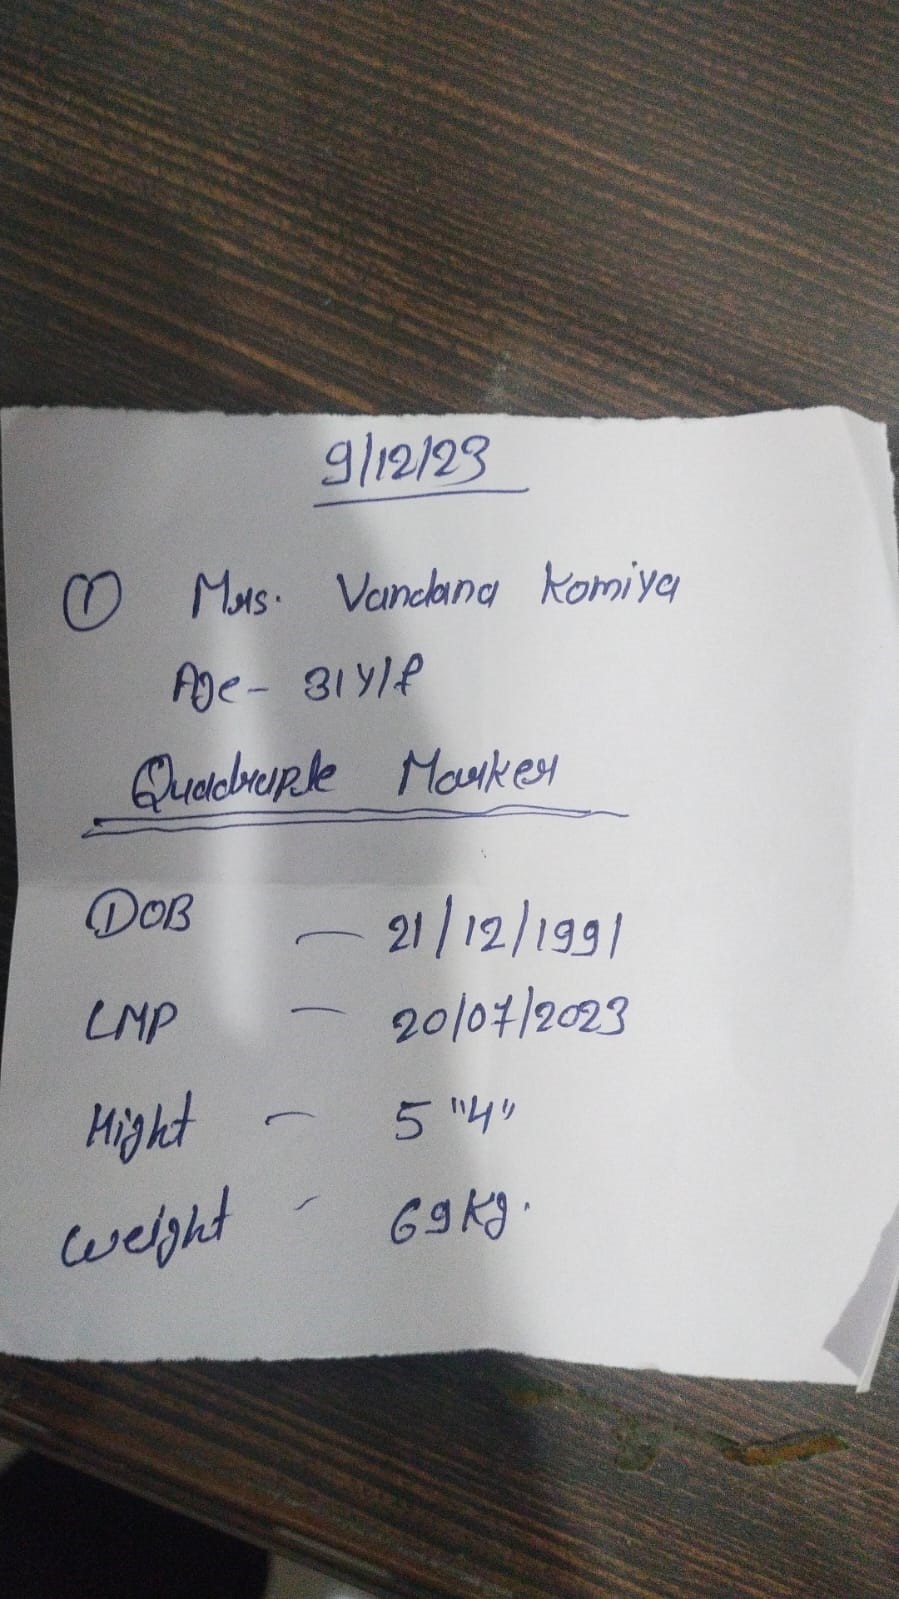 9/12/23
① Mrs. Vandana Komiya
Age - 31Y/f
Quadruple Marker
DOB — 21/12/1991
LMP — 20/07/2023
Hight — 5 "4"
Weight - 69kg.